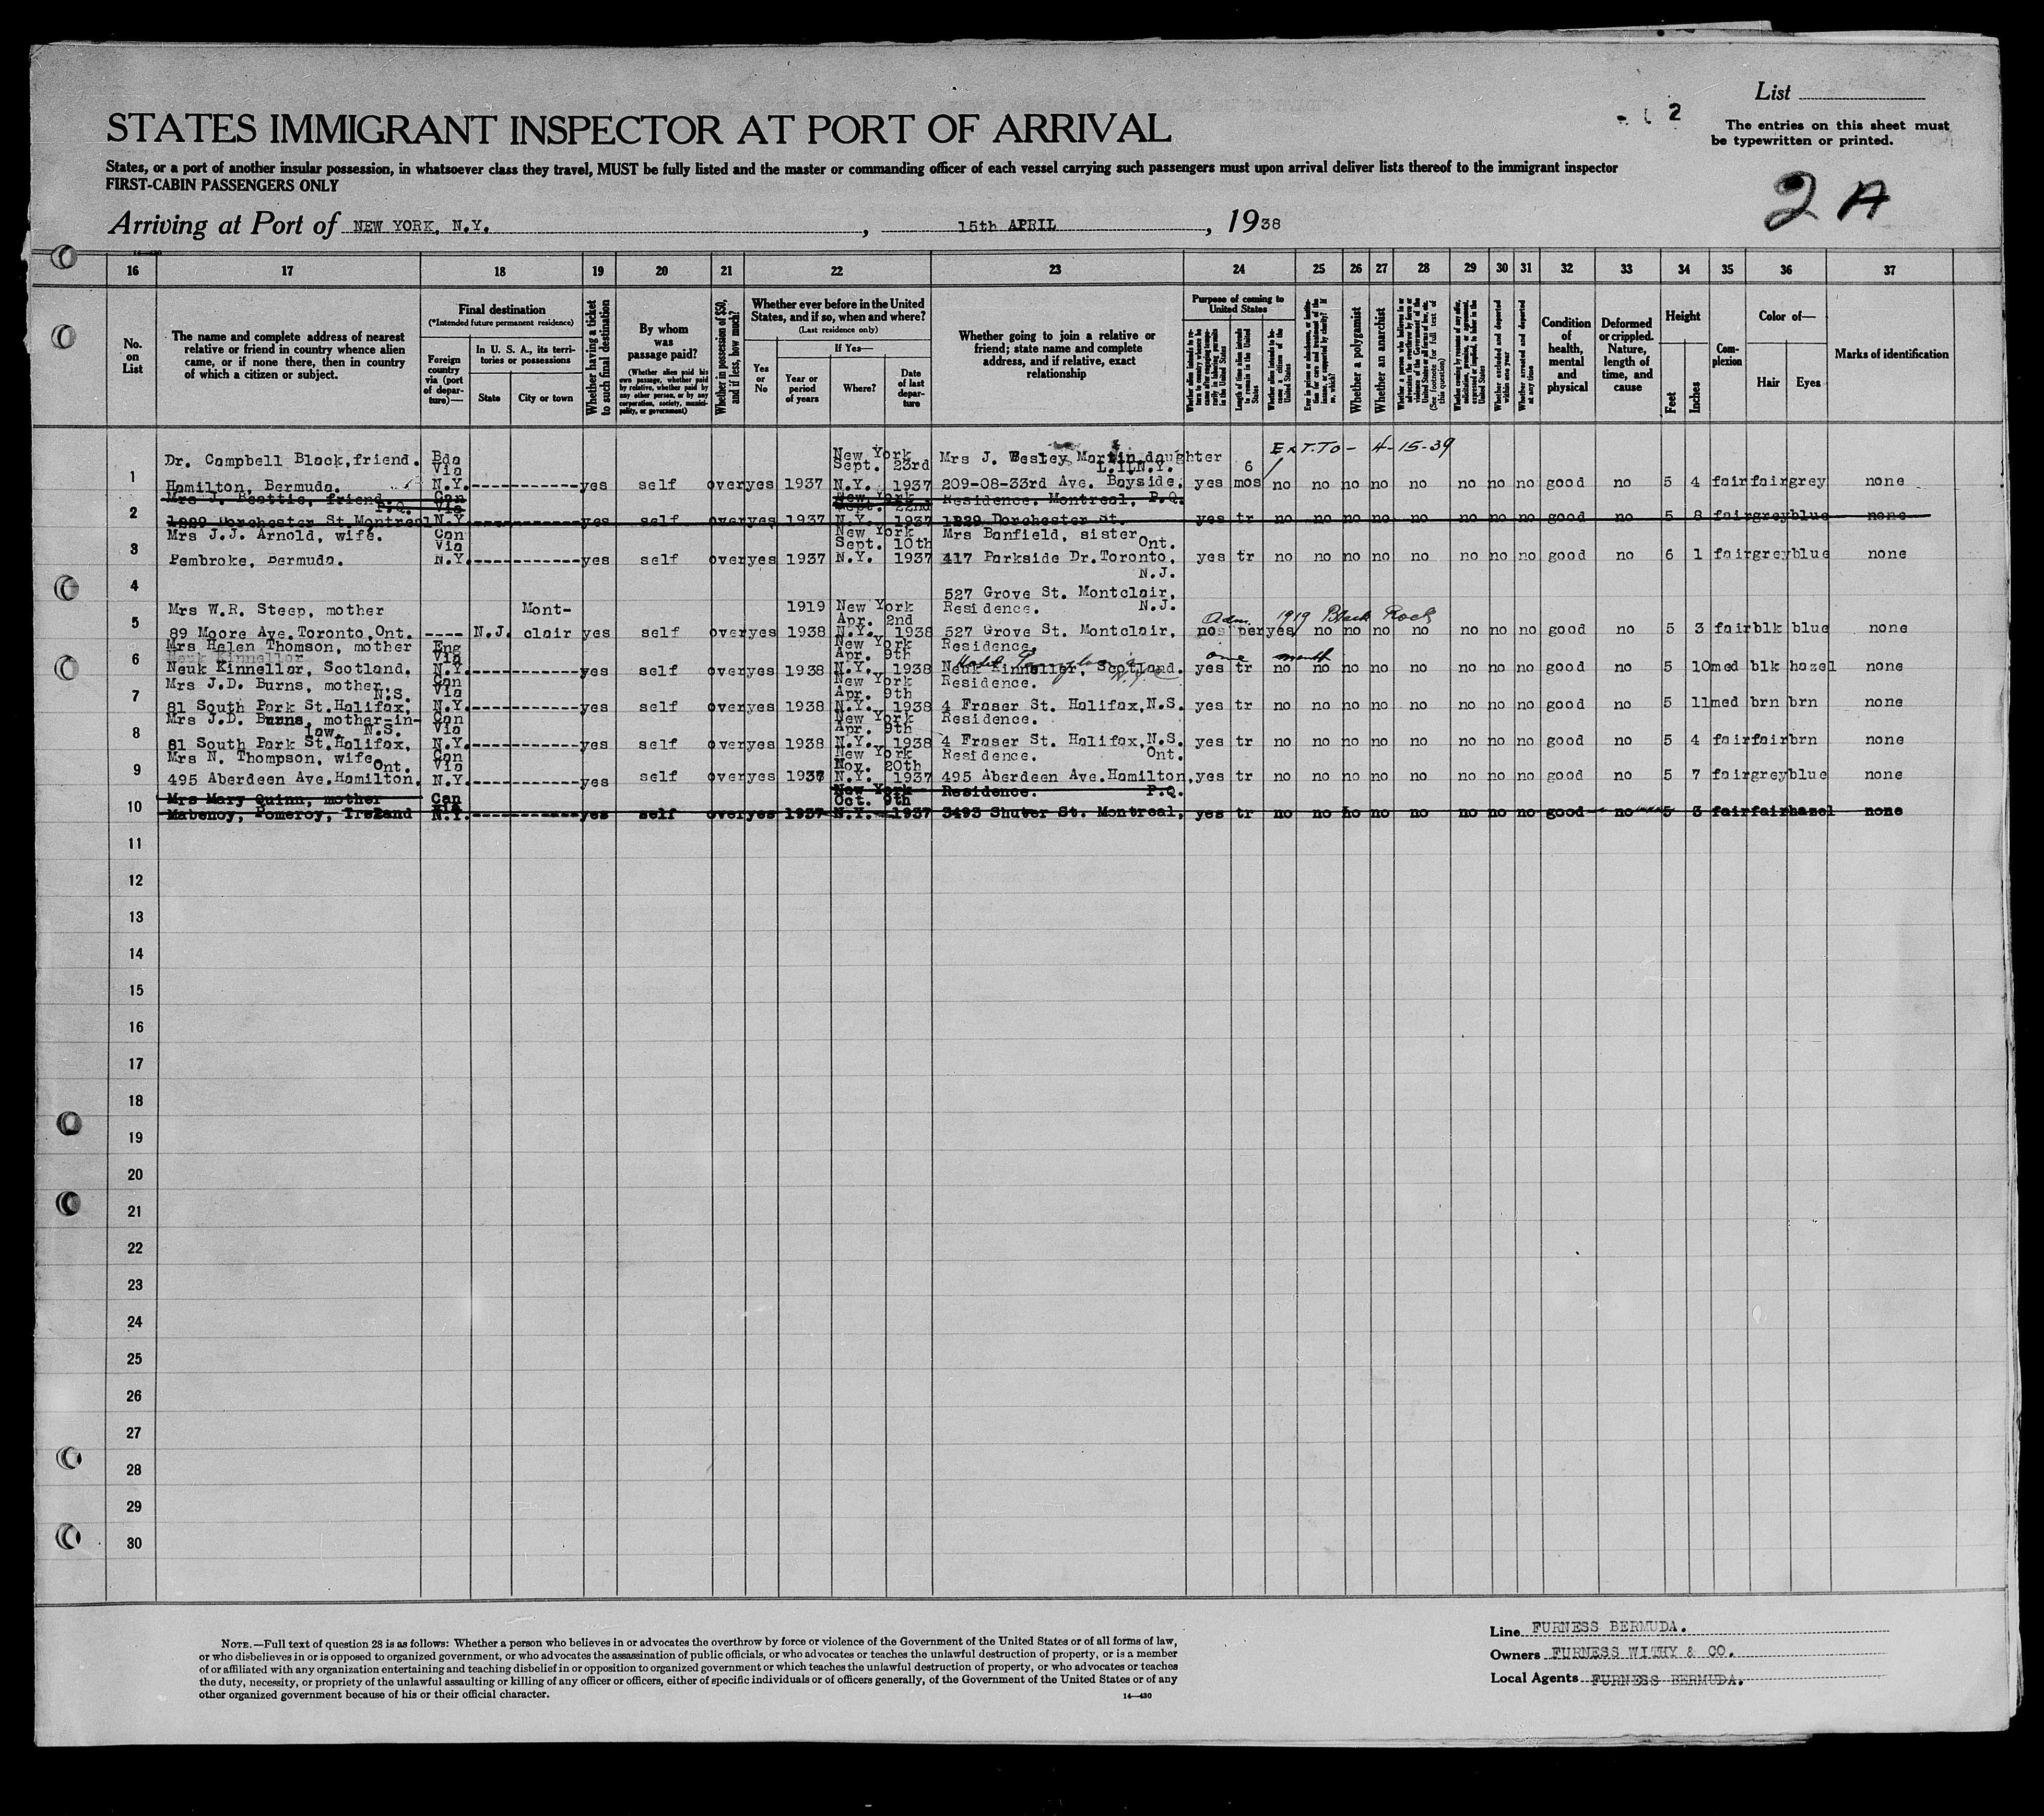 List
- ( 2
The entries on this sheet must
be typewritten or printed.
STATES IMMIGRANT INSPECTOR AT PORT OF ARRIVAL
States, or a port of another insular possession, in whatsoever class they travel, MUST be fully listed and the master or commanding officer of each vessel carrying such passengers must upon arrival deliver lists thereof to the immigrant inspector
FIRST-CABIN PASSENGERS ONLY
2 A
Arriving at Port of NEW YORK, N.Y. , 15th APRIL , 1938
16 17 18 19 20 21 22 23 24 25 26 27 28 29 30 31 32 33 34 35 36 37
No. on List
The name and complete address of nearest relative or friend in country whence alien came, or if none there, then in country of which a citizen or subject.
Final destination
(*Intended future permanent residence)
Foreign country via (port of departure)—
In U. S. A., its territories or possessions
State
City or town
Whether having a ticket to such final destination
By whom was passage paid?
(Whether alien paid his own passage, whether paid by relative, whether paid by any other person, or by any corporation, society, municipality, or government)
Whether in possession of $50, and if less, how much?
Whether ever before in the United States, and if so, when and where?
(Last residence only)
Yes or No
If Yes—
Year or period of years
Where?
Date of last departure
Whether going to join a relative or friend; state name and complete address, and if relative, exact relationship
Purpose of coming to United States
Length of time alien intends to remain in the United States
Whether alien intends to become a citizen of the United States
Whether a polygamist
Whether an anarchist
Whether excluded and deported within one year
Whether arrested and deported at any time
Condition of health, mental and physical
Deformed or crippled. Nature, length of time, and cause
Height
Feet
Inches
Complexion
Color of—
Hair
Eyes
Marks of identification
Ext. To - 4-15-39
1 Dr. Campbell Black, friend. Hamilton, Bermuda. Bda Via N.Y. yes self over yes 1937 New York N.Y. Sept. 23rd 1937 Mrs J. Wesley Martin daughter L.I.N.Y. 209-08-33rd Ave. Bayside. yes 6 mos no no no no no no no no good no 5 4 fair fair grey none
2 Mrs J. Beattie, friend. P.Q. 1229 Dorchester St. Montreal Can Via N.Y. yes self over yes 1937 New York N.Y. Sept. 22nd 1937 Residence. Montreal, P.Q. 1229 Dorchester St. yes tr no no no no no no no no good no 5 8 fair grey blue none
3 Mrs J.J. Arnold, wife. Pembroke, Bermuda. Can Via N.Y. yes self over yes 1937 New York N.Y. Sept. 10th 1937 Mrs Banfield, sister Ont. 417 Parkside Dr. Toronto, yes tr no no no no no no no no good no 6 1 fair grey blue none
4 N.J. 527 Grove St. Montclair,
Adm. 1919 Black Rock
5 Mrs W.R. Steep, mother 89 Moore Ave. Toronto, Ont. ---- N.J. Mont-clair yes self over yes 1919 1938 New York N.Y. Apr. 2nd 1938 Residence. N.J. 527 Grove St. Montclair, no per yes no no no no no no no good no 5 3 fair blk blue none
one month
6 Mrs Helen Thomson, mother Neuk Kinnellar, Scotland. Eng Via N.Y. yes self over yes 1938 New York N.Y. Apr. 9th 1938 Residence. Neuk Kinnellar, Scotland. yes tr no no no no no no no no good no 5 10 med blk hazel none
7 Mrs J.D. Burns, mother N.S. 81 South Park St. Halifax, Can Via N.Y. yes self over yes 1938 New York N.Y. Apr. 9th 1938 Residence. 4 Fraser St. Halifax, N.S. yes tr no no no no no no no no good no 5 11 med brn brn none
8 Mrs J.D. Burns, mother-in-law. N.S. 81 South Park St. Halifax, Can Via N.Y. yes self over yes 1938 New York N.Y. Apr. 9th 1938 Residence. 4 Fraser St. Halifax, N.S. yes tr no no no no no no no no good no 5 4 fair fair brn none
9 Mrs N. Thompson, wife Ont. 495 Aberdeen Ave. Hamilton, Can Via N.Y. yes self over yes 1937 New York N.Y. Nov. 20th 1937 Residence. Ont. 495 Aberdeen Ave. Hamilton, yes tr no no no no no no no no good no 5 7 fair grey blue none
10 Mrs Mary Quinn, mother Mabenoy, Pomeroy, Ireland Can Via N.Y. yes self over yes 1937 New York N.Y. Oct. 9th 1937 Residence. P.Q. 3493 Shuter St. Montreal, yes tr no no no no no no no no good no 5 3 fair fair hazel none
11
12
13
14
15
16
17
18
19
20
21
22
23
24
25
26
27
28
29
30
NOTE.—Full text of question 28 is as follows: Whether a person who believes in or advocates the overthrow by force or violence of the Government of the United States or of all forms of law,
or who disbelieves in or is opposed to organized government, or who advocates the assassination of public officials, or who advocates or teaches the unlawful destruction of property, or is a member
of or affiliated with any organization entertaining and teaching disbelief in or opposition to organized government or which teaches the unlawful destruction of property, or who advocates or teaches
the duty, necessity, or propriety of the unlawful assaulting or killing of any officer or officers, either of specific individuals or of officers generally, of the Government of the United States or of any
other organized government because of his or their official character.
14—430
Line FURNESS BERMUDA.
Owners FURNESS WITHY & CO.
Local Agents FURNESS BERMUDA.